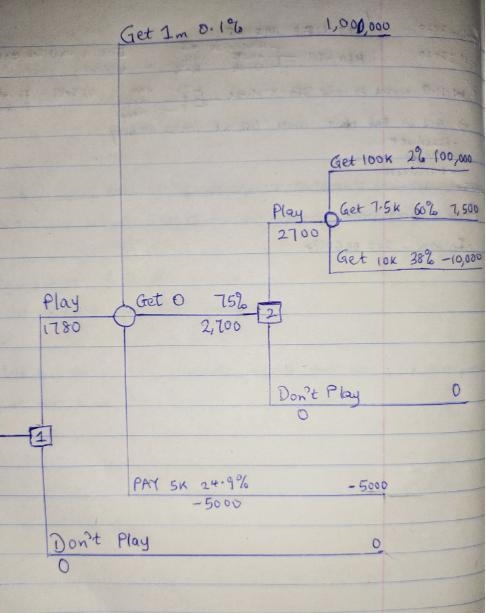 Get 1m 0.1% 1,000,000
Get 100k 2% 100,000
Play Get 7.5k 60% 7,500
2700
Get 10k 38% -10,000
Play Get 0 75% 2
1780 2,700
Don't Play 0
0
1
PAY 5K 24.9% -5000
-5000
Don't Play 0
0